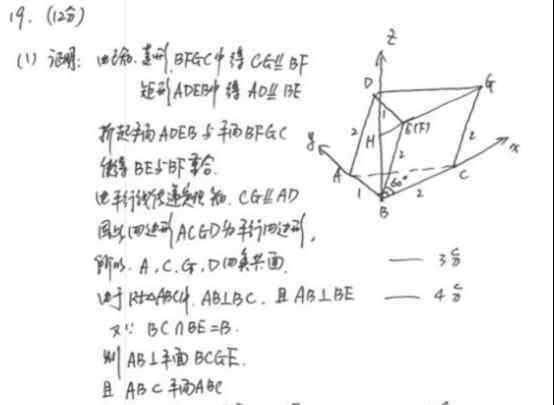 19. (12分)
(1) 证明: 由已知, 菱形 BFGC中得 CG∥BF
矩形 ADEB中得 AD∥BE
折起平面 ADEB与平面BFGC
使得BE与BF重合.
由平行线传递关系知, CG∥AD
因此四边形ACGD为平行四边形,
所以. A, C, G, D四点共面. —— 3分
由于 Rt△ABC中, AB⊥BC, 且AB⊥BE —— 4分
又∵ BC∩BE=B.
则 AB⊥平面BCGE.
且 AB⊂平面ABC
z
D
G
1
H
E(F)
2
2
2
y
x
A
C
60°
1
2
B